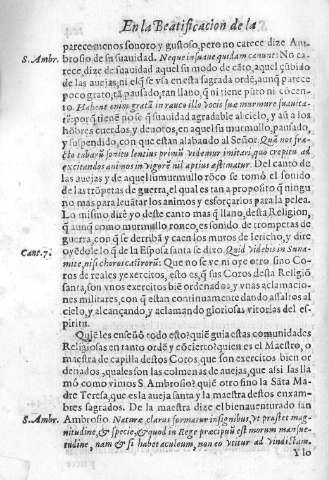 En la Beatificacion de la
parece menos sonoro y gustoso, pero no carece dize Am-
S. Ambr. brosio de su suauidad. Neque insuaue quidam canunt: No ca-
rece, dize de suauidad aquel su modo de cãto, aquel çũbido
de las auejas, ni el q̃ se vsa en esta sagrada ordẽ, aunq̃ parece
poco grato, tã pausado, tan llano, q̃ ni tiene pũto ni cõcen-
to. Habent enim gratã in rauco illo vocis suæ murmure suauita-
tẽ: porq̃ tienẽ no se q̃ suauidad agradable al cielo, y aũ a los
hõbres cuerdos, y deuotos, en aquel su murmullo, pausado,
y suspendido, con que estan alabando al Señor. Quã nos fra-
cto tubarũ sonitu lentius primũ videmur imitari, quo crepitu ad
excitandos animos in vigorẽ nil aptius æstimatur. Del canto de
las auejas y de aquel su murmullo rõco se tomô el sonido
de las trõpetas de guerra, el qual es tan a proposito q̃ ningu
no mas para leuãtar los animos y esforçarlos para la pelea.
Lo mismo dirè yo deste canto mas q̃ llano, desta Religion,
q̃ aunq̃ como murmullo ronco, es sonido de trompetas de
guerra, con q̃ se derribã y caen los muros de Iericho, y dire
Cant. 7. oyẽdole lo q̃ de la Esposa santa se dixo. Quid videbis in Suna-
mite, nisi choros castrorũ: Que no se ve ni oye otro sino Co-
ros de reales y exercitos, esto es, q̃ sus Coros desta Religiõ
santa, son vnos exercitos biẽ ordenados, y vnas aclamacio-
nes militares, con q̃ estan continuamente dando assaltos al
cielo, y alcançando, y aclamando gloriosas vitorias del es-
piritu.
Quiẽ les enseñò todo esto? quiẽ guia estas comunidades
Religiosas en tanto ordẽ y cõcierto? quien es el Maestro, o
maestra de capilla destos Coros, que son exercitos bien or
denados, quales son las colmenas de auejas, que assi las lla
mó como vimos S. Ambrosio? quiẽ otro sino la Sãta Ma-
dre Teresa, que es la aueja santa y la maestra destos enxam-
bres sagrados. De la maestra dize el bienauenturado san
S. Ambr. Ambrosio. Naturæ claris formatur insignibus, vt præstet mag-
nitudine, & specie, & quod in Rege præcipuũ est morum mansue-
tudine, nam & si habet aculeum, non eo vtitur ad vindictam.
Y lo